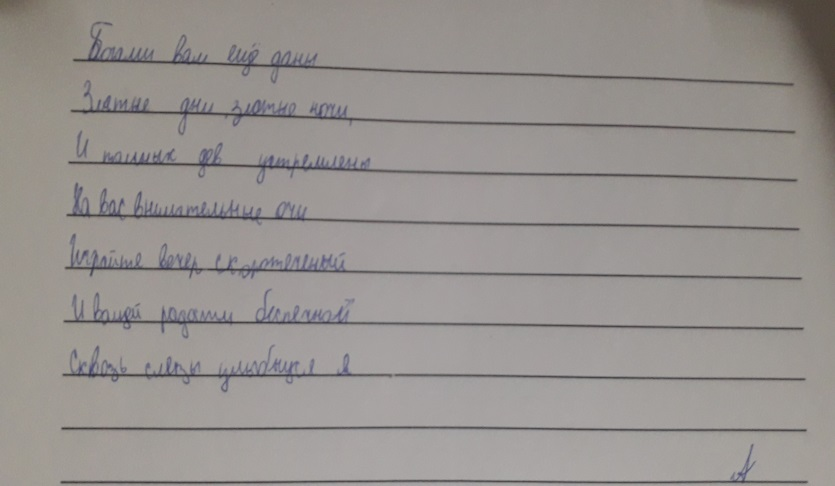 Богами вам ещё даны
Златые дни, златые ночи,
И томных дев устремлены
На вас внимательные очи
Играйте вечер скоротеченый
И вашей радости беспечной
Сквозь слезы улыбнуся я
А